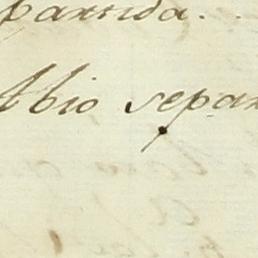 partida. . .
Abio separ